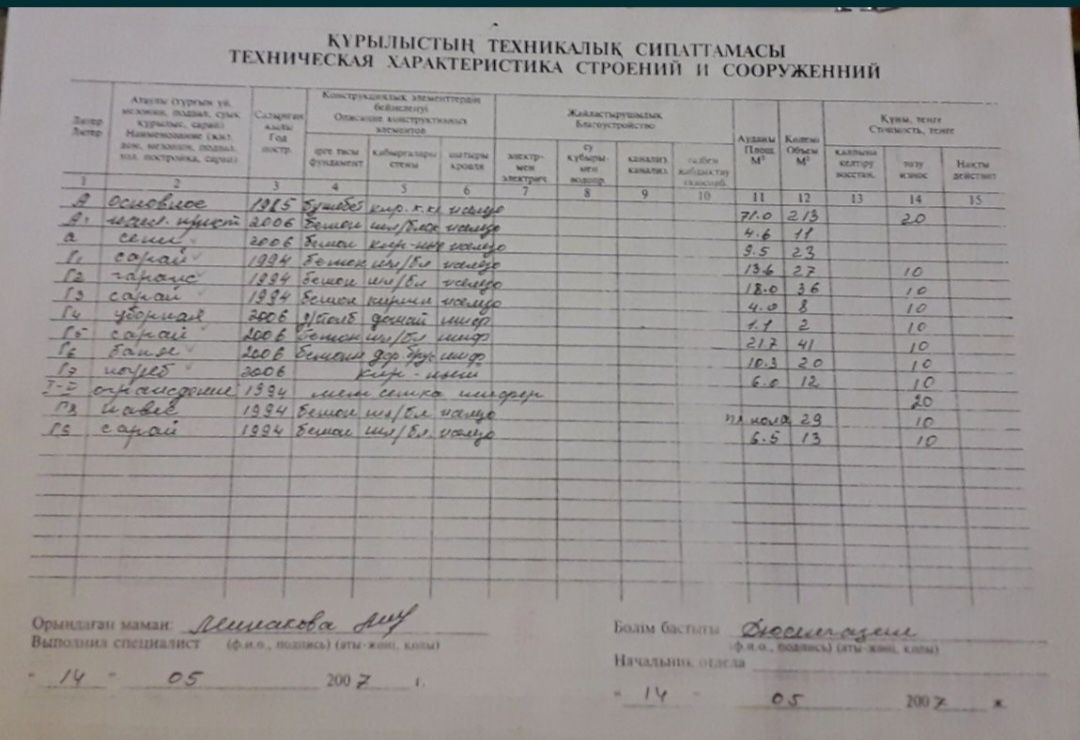 ҚҰРЫЛЫСТЫҢ ТЕХНИКАЛЫҚ СИПАТТАМАСЫ
ТЕХНИЧЕСКАЯ ХАРАКТЕРИСТИКА СТРОЕНИЙ И СООРУЖЕННИЙ
Литер Литер
Атауы (тұрғын үй, мезонин, подвал, суық құрылыс, сарай) Наименование (жил. дом, мезонин, подвал, хол. постройка, сарай)
Салынған жылы Год постр.
Конструкциялық элементтердің бейнеленуі Описание конструктивных элементов
іргетасы фундамент қабырғалары стены шатыры кровля
Жайластырушылық Благоустройство
электр-мен электрич. су құбыры-мен водопр. канализ. канализ. газбен жабдықтау
Ауданы Площ. М² Көлемі Объем М³
Құны, тенге Стоимость, тенге
қалпына келтіру восстан. тозу износ Нақты действит
1 2 3 4 5 6 7 8 9 10 11 12 13 14 15
А основное 1985 бутобет кир. к.кл шифер 71.0 213 20
А1 2006 бетон шл/блок 4.6 11
а сени 2006 бетон кир- 9.5 23
Г1 сарай 1994 бетон шл/бл 13.6 27 10
Г2 гараж 1994 бетон шл/бл 18.0 36 10
Г3 сарай 1994 бетон кирпич 4.0 8 10
Г4 уборная 2006 шиф 1.1 2 10
Г5 сарай 2006 бетон шл/бл шиф 21.7 41 10
Г6 баня 2006 бетон шиф 10.3 20 10
Г7 погреб 2006 кир - 6.0 12 10
I-II ограждение 1994 мет сетка шифер 20
Г8 навес 1994 бетон шл/бл 29 10
Г9 сарай 1994 бетон шл/бл 6.5 13 10
Орындаған маман: Минакова
Выполнил специалист (ф.и.о., подпись) (аты-жөні, қолы)
" 14 " 05 2007 г.
Бөлім бастығы
(ф.и.о., подпись) (аты-жөні, қолы)
Начальник отдела
" 14 " 05 2007 ж.